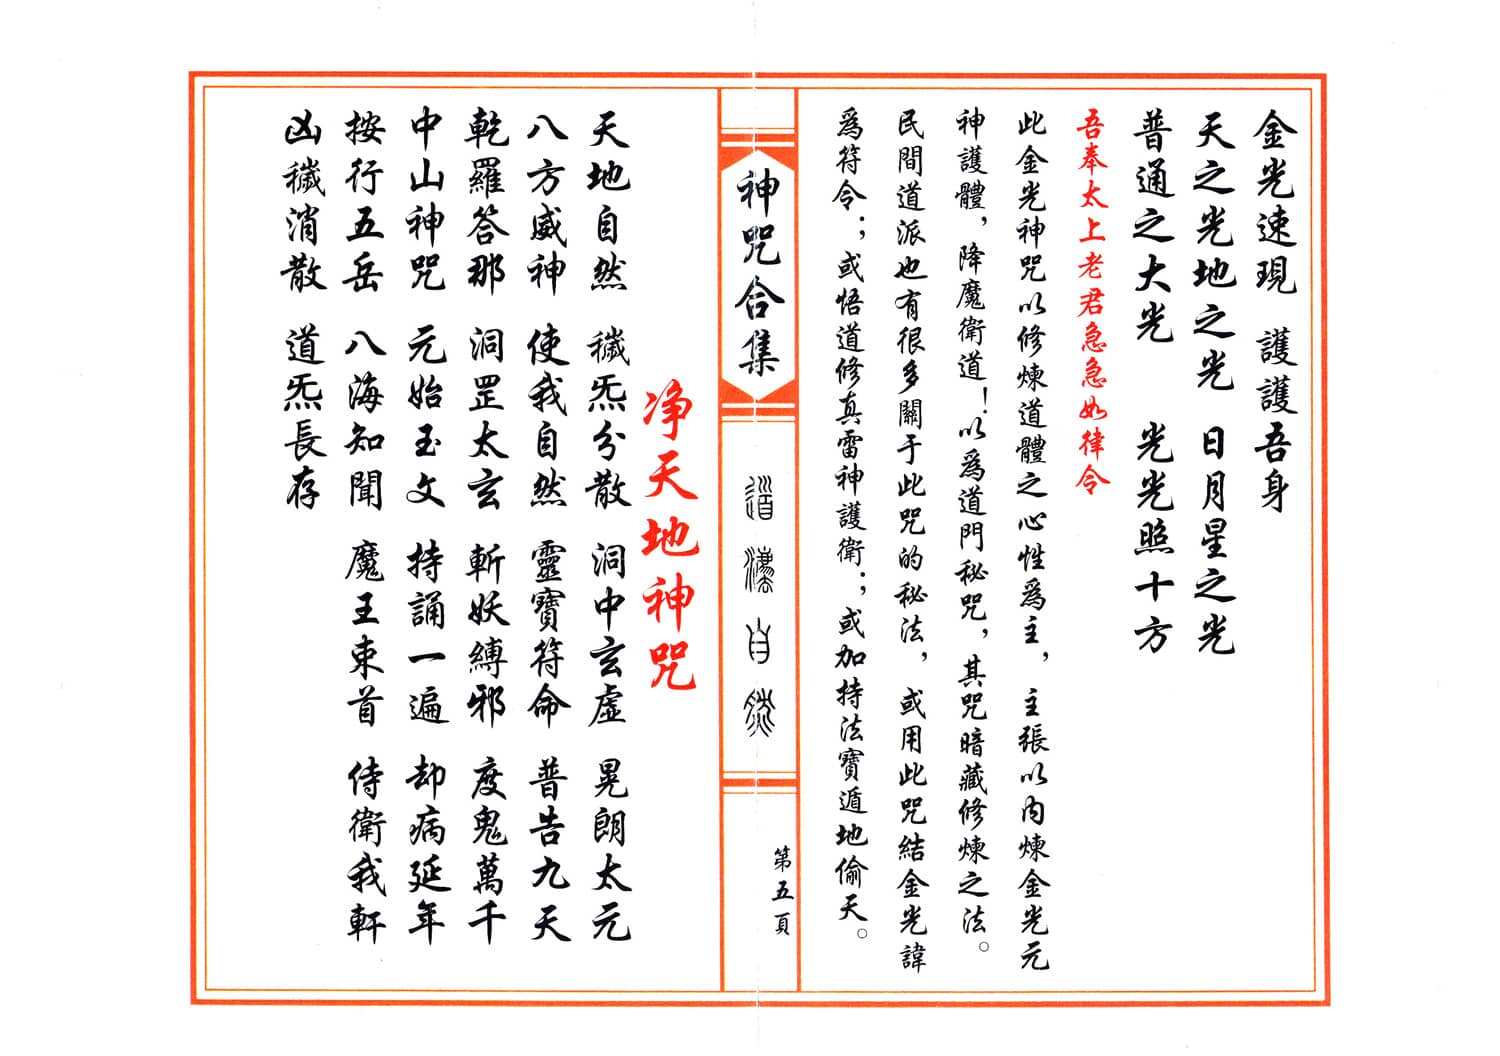 金光速現　護護吾身
天之光地之光　日月星之光
普通之大光　光光照十方
吾奉太上老君急急如律令
此金光神咒以修煉道體之心性爲主，主張以内煉金光元
神護體，降魔衛道！以爲道門秘咒，其咒暗藏修煉之法。
民間道派也有很多關于此咒的秘法，或用此咒結金光諱
爲符令；或悟道修真雷神護衛；或加持法寶遁地偷天。
神咒合集
道法自然
第五頁
净天地神咒
天地自然　穢炁分散　洞中玄虛　晃朗太元
八方威神　使我自然　靈寶符命　普告九天
乾羅答那　洞罡太玄　斬妖縛邪　度鬼萬千
中山神咒　元始玉文　持誦一遍　却病延年
按行五岳　八海知聞　魔王束首　侍衛我軒
凶穢消散　道炁長存